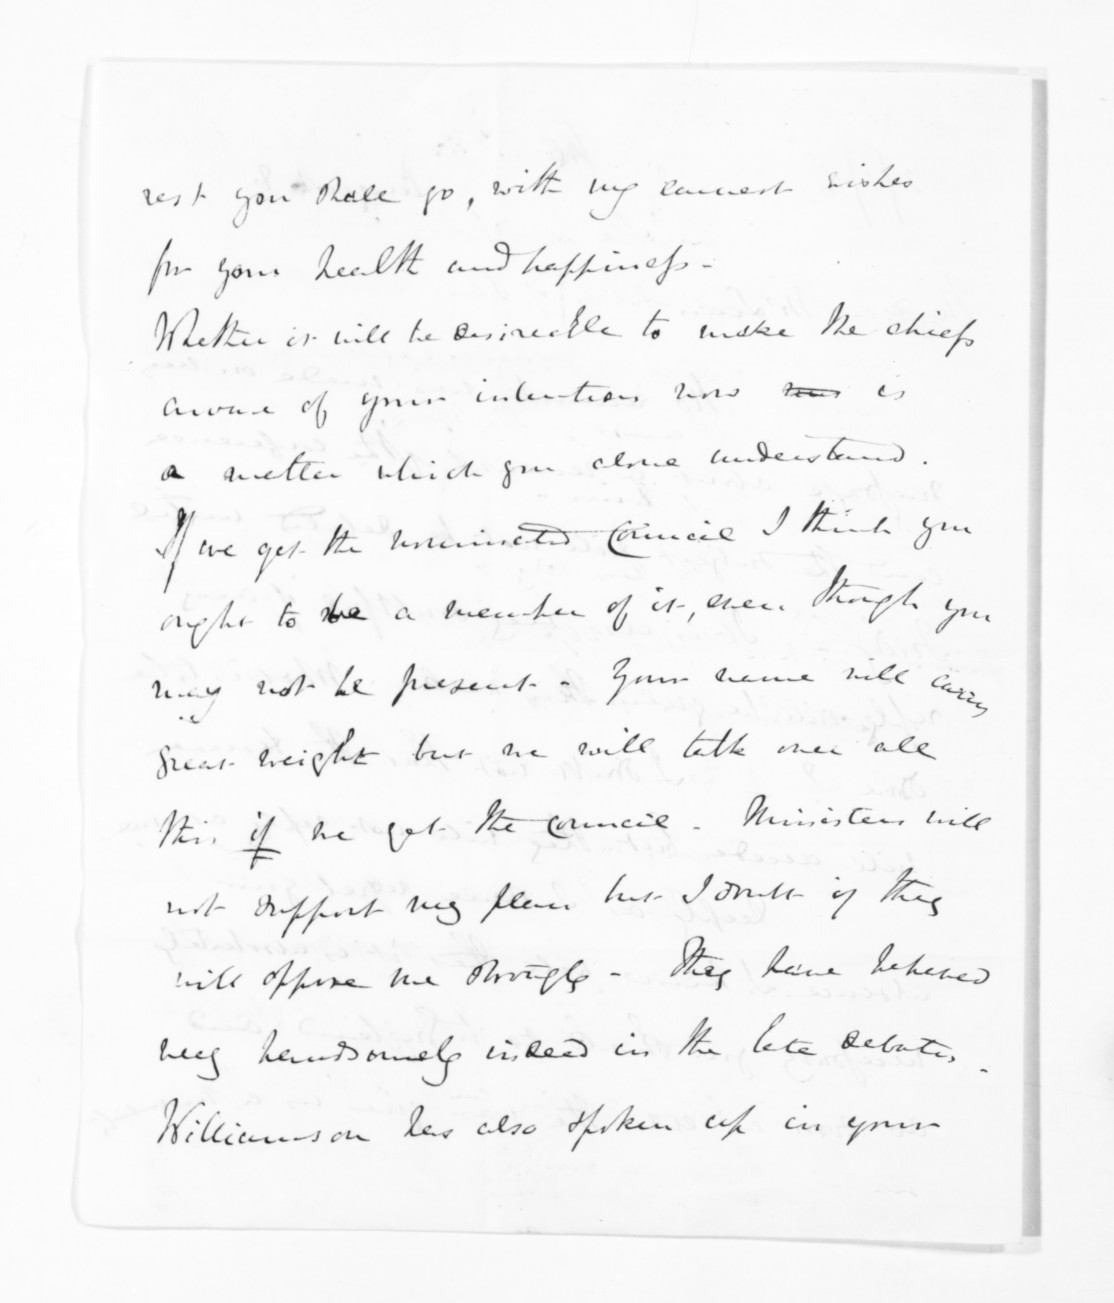 rest you shall go, with my earnest wishes
for your health and happiness -
Whether it will be desireable to make the chiefs
aware of your intention now is
a matter which you alone understand.
If we get the nominated Council I think you
ought to be a member of it, even though you
may not be present - Your name will carry
great weight but we will talk over all
this if we get the council - Ministers will
not support my plan but I doubt if they
will oppose me strongly - They have behaved
very handsomely indeed in the late debates.
Williamson has also spoken up in your